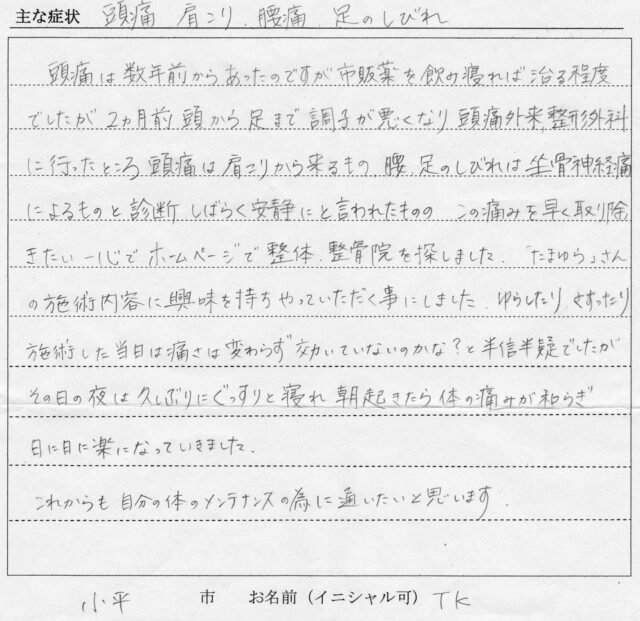 主な症状 頭痛 肩こり、腰痛、足のしびれ
頭痛は数年前からあったのですが市販薬を飲み寝れば治る程度
でしたが2ヵ月前頭から足まで調子が悪くなり頭痛外来、整形外科
に行ったところ頭痛は肩こりから来るもの、腰、足のしびれは坐骨神経痛
によるものと診断しばらく安静にと言われたものの この痛みを早く取り除
きたい一心でホームページで整体、整骨院を探しました。「たまゆら」さん
の施術内容に興味を持ちやっていただく事にしました。ゆらしたり、さすったり
施術した当日は痛さは変わらず効いていないのかな?と半信半疑でしたが
その日の夜は久しぶりにぐっすりと寝れ朝起きたら体の痛みが和らぎ
日に日に楽になっていきました。
これからも自分の体のメンテナンスの為に通いたいと思います。
小平 市 お名前(イニシャル可) TK